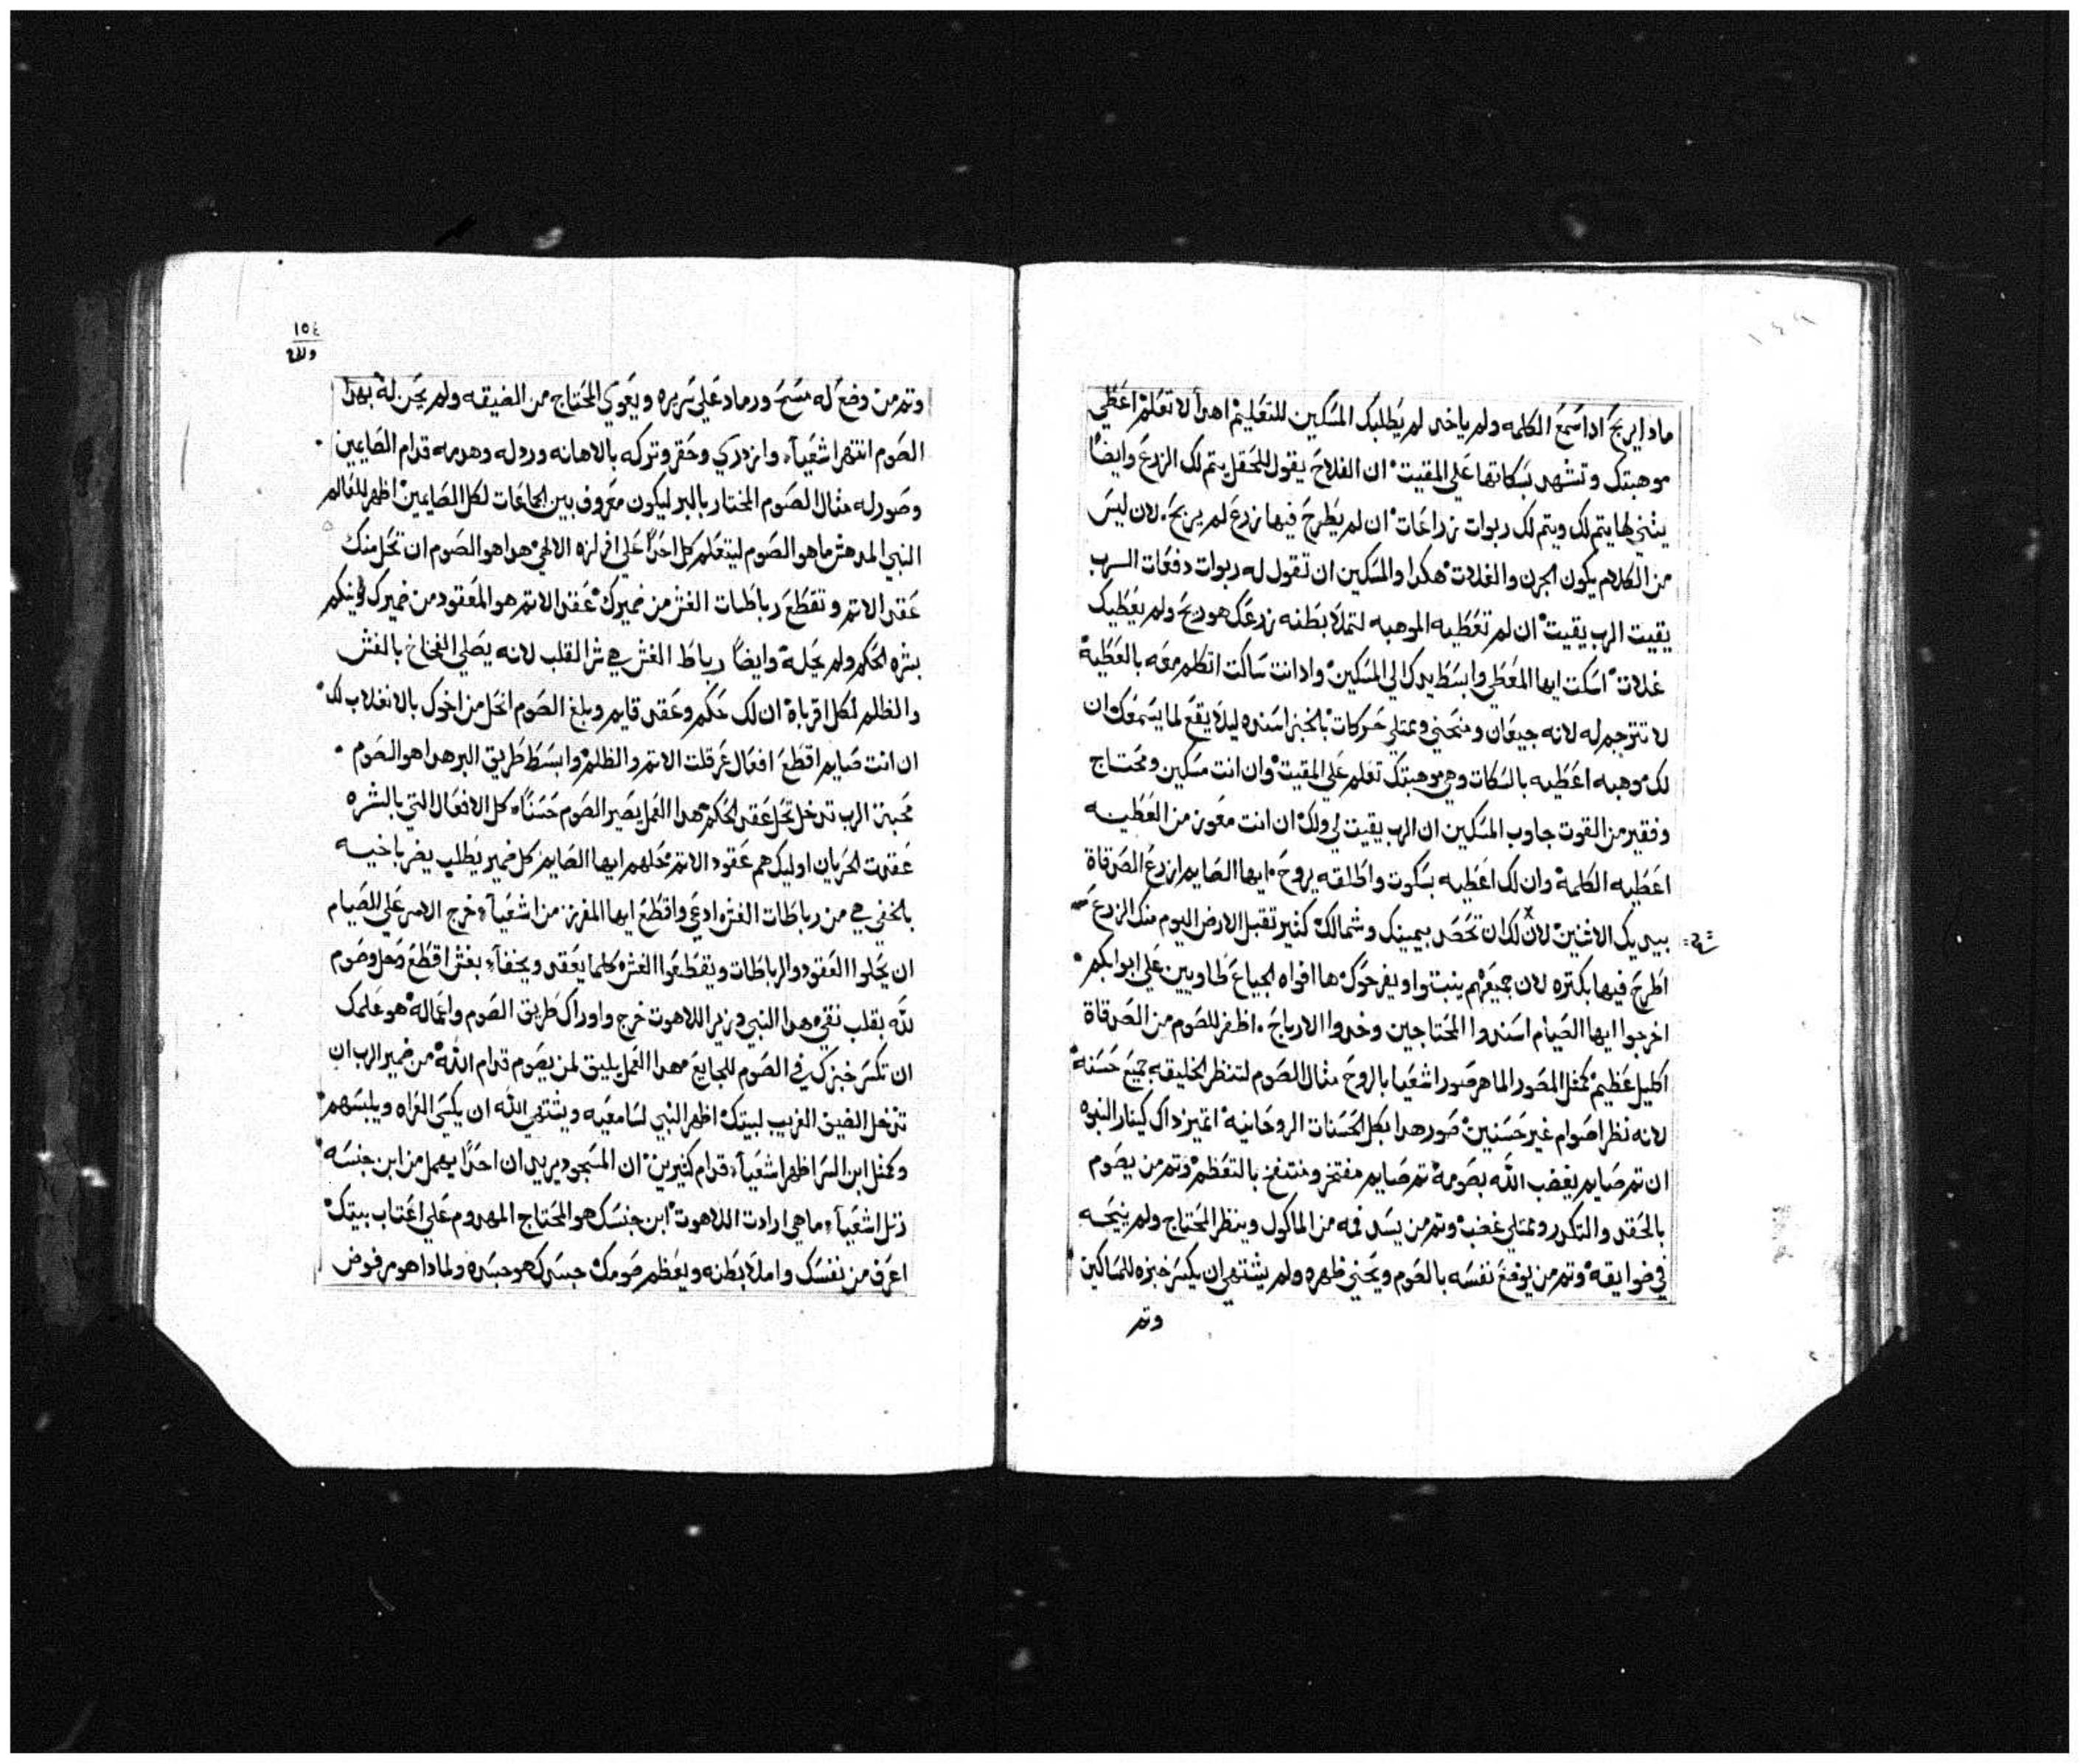 ١٤٩
مادا يربح ادا سمع الكلمه ولم ياخد لم يطلبك المسكين للتعليم اهدا لا تعلم اعطي
موهبتك وتشهد بسكاتها علي المقيت ان الفلاح يقول للحقل يتم لك الزرع وايضًا
يثني لها يتم لك ويتم لك ربوات زراعات ان لم يطرح فيها زرع لم يربح. لان ليس
من الكلام يكون الجرن والغلات هكدا والمسكين ان تقول له ربوات دفعات الرب
يقيت الرب يقيت ان لم تعطيه الموهبه لتملا بطنه زرعك هو ريح ولم يعطيك
غلات اسكت ايها المعطي وابسط يدك الي المسكين وادا انت ساكت اتكلم معه بالعطية
لا تترجم له لانه جيعان ومنحني وممتلي حركات بالخبز اسنده ليلا يقع لما يسمعك ان
لك موهبه اعطيه بالسكات وهي موهبتك تعلم علي المقيت وان انت مسكين ومحتاج
وفقير من القوت جاوب المسكين ان الرب يقيت لي ولك ان انت معوز من العطيه
اعطيه الكلمة وان لك اعطيه بسكوت واطلقه يروح. ايها الصايم ازرع الصدقاة
بيديك الاثنين لان لك ان تحصد بيمينك وشمالك كثير تقبل الارض اليوم منك الزرع
اطرح فيها بكتره لان جميعهم ينبتوا ويفرحوك ها افواه الجياع طاويين علي ابوابكم
اخرجوا ايها الصيام اسندوا المحتاجين وخدوا الارباح. اظفر للصوم من الصدقاة
اكليل عظيم كمثل المصور الماهر صور اشعيا بالروح مثال الصوم لتنظر الخليقه جميع حسنه
لانه نظر اصوام غير حسنين صور هدا بكل الحسنات الروحانية اتميز داك كينار النبوه
ان تم صايم يغضب الله بصومه تم صايم مفتخر ومنتفخ بالتعظم وتم من يصوم
بالحقد والتكدر وممتلي غضب وتم من يسد فمه من الماكول وينظر المحتاج ولم ينيحه
في ضوايقه وتم من يوضع نفسه بالصوم ويحني ظهره ولم يشتهي ان يكسر خبزه للمساكين
وتم
١٥٤
وتم من وضع له مسح ورماد علي سريره ويعوي المحتاج من الضيقه ولم يحن له بهدا
الصوم انتهر اشعياء وازدري وحقر وتركه بالاهانه وردله وهدمه قدام الصايمين.
وصور له مثال الصوم المختار بالبر ليكون معروف بين الجماعات لكل الصايمين اظهر للعالم
النبي المدهش ما هو الصوم ليتعلم كل احدًا علي افرازه الالهي هدا هو الصوم ان تحل منك
عقد الاتم وتقطع رباطات الغش من ضميرك عقد الاتم هو المعقود من ضميرك
بشره لحكم ولم يحله وايضًا رباط الغش هي شر القلب لانه يصلي الفخاخ بالغش
والظلم لكل اقرباه ان لك حكم وعقد قايم وبلغ الصوم انحل من اخوك بالانغلاب لك
ان انت صايم اقطع افعال عرقلت الاتم والظلم وابسط طريق البر هدا هو الصوم.
محبة الرب تدخل تحل عقد لحكم هدا العمل يصير الصوم حسنًا كل الافعال التي بالشره
عقدت الحريان اوليك هم عقود الاتم محلهم ايها الصايم كل ضمير يطلب يضر باخيه
بالخفي هي من رباطات الغش ادعي واقطع ايها المفرز من اشعياء خرج الامر علي للصيام
ان يحلوا العقود والرباطات ويقطعوا الغش كلما يعقد ويخفا بغش اقطع وحل وصوم
لله بقلب نقي هدا النبي وزير اللاهوت خرج واوراك طريق الصوم واعماله هو علمك
ان تكسر خبزك في الصوم للجايع هدا العمل يليق لمن يصوم قدام الله من ضمير الرب ان
تدخل الضيف الغريب لبيتك اظهر النبي لسامعيه ويشتهي الله ان يكسي العراه ويلبسهم
وكمثل ابن السر اظهر اشعياء قدام كثيرين ان المسجود يريد ان احدًا يهمل من ابن جنسه
دتل اشعياء ما هي ارادت اللاهوت ابن جنسك هو المحتاج المهدوم علي اعتاب بيتك
اعرف من نفسك واملا بطنه ويعظم صومك جسدك هو جسده ولمادا هو مرفوض